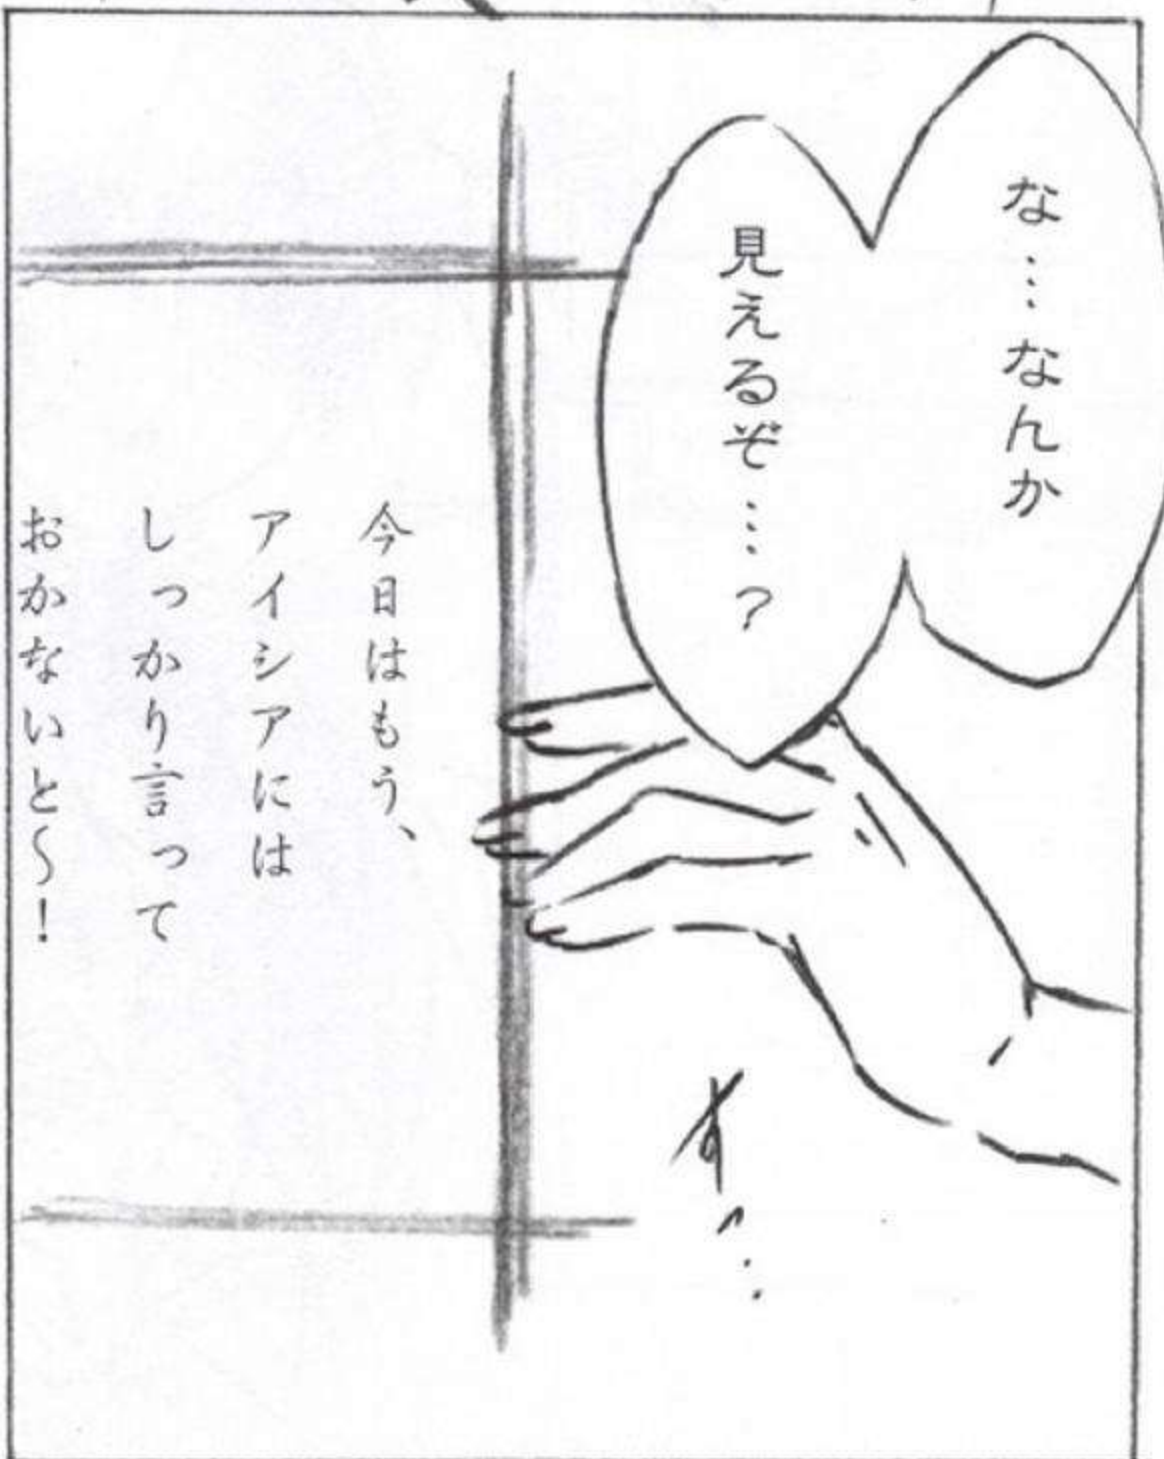 な…なんか
見えるぞ…？
今日はもう、
アイシアには
しっかり言って
おかないと～！
すっ…